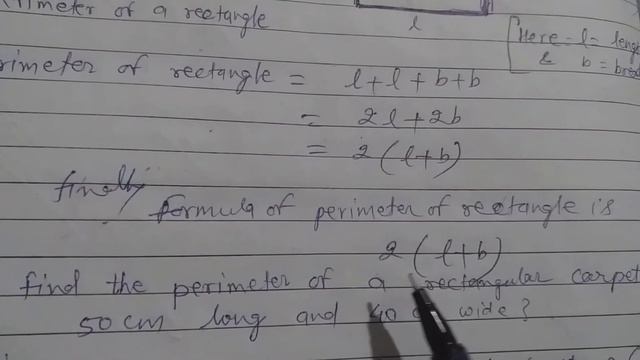 of a rectangle
l
Here - l =
& b =
of rectangle = l+l+b+b
= 2l+2b
= 2(l+b)
finally
formula of perimeter of rectangle is
2(l+b)
find the perimeter of a rectangular carpet
50 cm long and 40 wide?